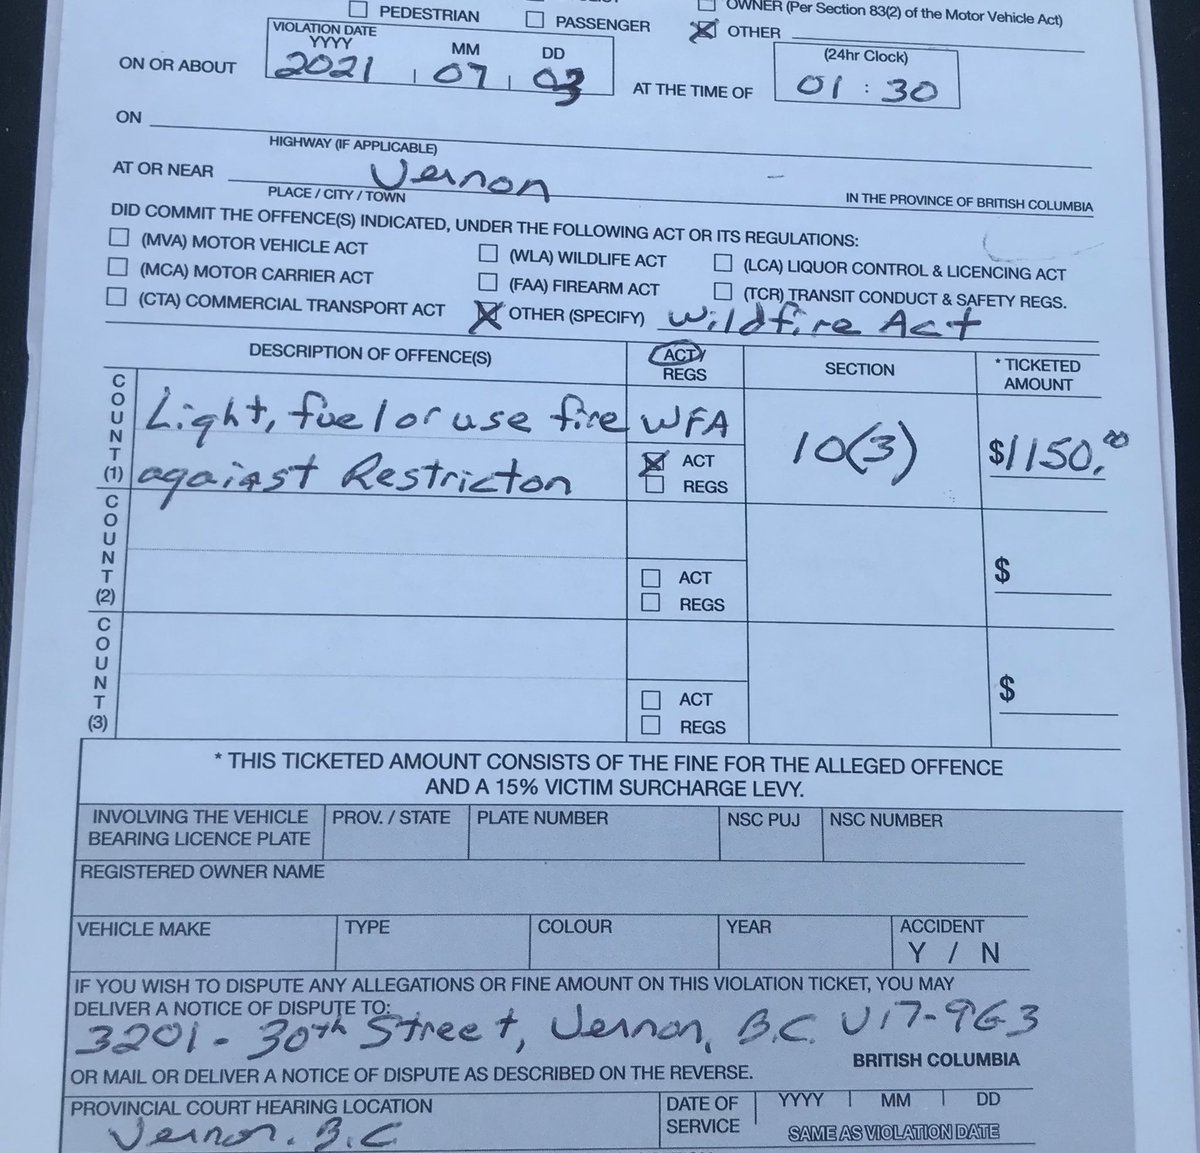 PEDESTRIAN
PASSENGER
OWNER (Per Section 83(2) of the Motor Vehicle Act)
OTHER
VIOLATION DATE
YYYY MM DD
(24hr Clock)
ON OR ABOUT 2021 07 03 AT THE TIME OF 01 : 30
ON
HIGHWAY (IF APPLICABLE)
AT OR NEAR Vernon
PLACE / CITY / TOWN IN THE PROVINCE OF BRITISH COLUMBIA
DID COMMIT THE OFFENCE(S) INDICATED, UNDER THE FOLLOWING ACT OR ITS REGULATIONS:
(MVA) MOTOR VEHICLE ACT (WLA) WILDLIFE ACT (LCA) LIQUOR CONTROL & LICENCING ACT
(MCA) MOTOR CARRIER ACT (FAA) FIREARM ACT (TCR) TRANSIT CONDUCT & SAFETY REGS.
(CTA) COMMERCIAL TRANSPORT ACT OTHER (SPECIFY) Wildfire Act
DESCRIPTION OF OFFENCE(S) ACT/ REGS SECTION * TICKETED AMOUNT
COUNT (1) Light, fuel or use fire WFA 10(3) $1150.00
against Restricton ACT
REGS
COUNT (2) $
ACT
REGS
COUNT (3) $
ACT
REGS
* THIS TICKETED AMOUNT CONSISTS OF THE FINE FOR THE ALLEGED OFFENCE
AND A 15% VICTIM SURCHARGE LEVY.
INVOLVING THE VEHICLE PROV. / STATE PLATE NUMBER NSC PUJ NSC NUMBER
BEARING LICENCE PLATE
REGISTERED OWNER NAME
VEHICLE MAKE TYPE COLOUR YEAR ACCIDENT
Y / N
IF YOU WISH TO DISPUTE ANY ALLEGATIONS OR FINE AMOUNT ON THIS VIOLATION TICKET, YOU MAY
DELIVER A NOTICE OF DISPUTE TO:
3201 - 30th Street, Vernon, B.C. V1T-9G3
BRITISH COLUMBIA
OR MAIL OR DELIVER A NOTICE OF DISPUTE AS DESCRIBED ON THE REVERSE.
PROVINCIAL COURT HEARING LOCATION DATE OF SERVICE YYYY MM DD
Vernon. B.C SAME AS VIOLATION DATE